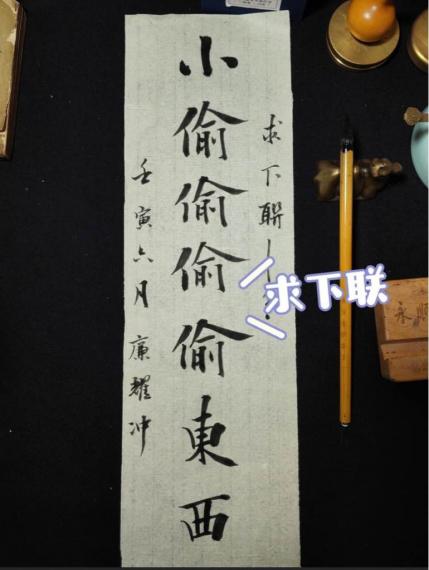 求下聯
小偷偷偷偷東西
壬寅六月廉耀冲
求下联